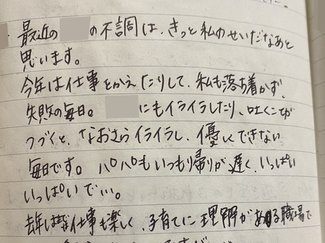 最近の の不調は、きっと私のせいだなあと
思います。
今年は仕事をかえたりして、私も落ち着かず、
失敗の毎日。 にもイライラしたり、吐くことが
つづくと、なおさらイライラし、優しくできない
毎日です。パパもいつも帰りが遅く、いっぱい
いっぱいで…。
去年は 仕事も楽しく、子育てに理解がある職場で